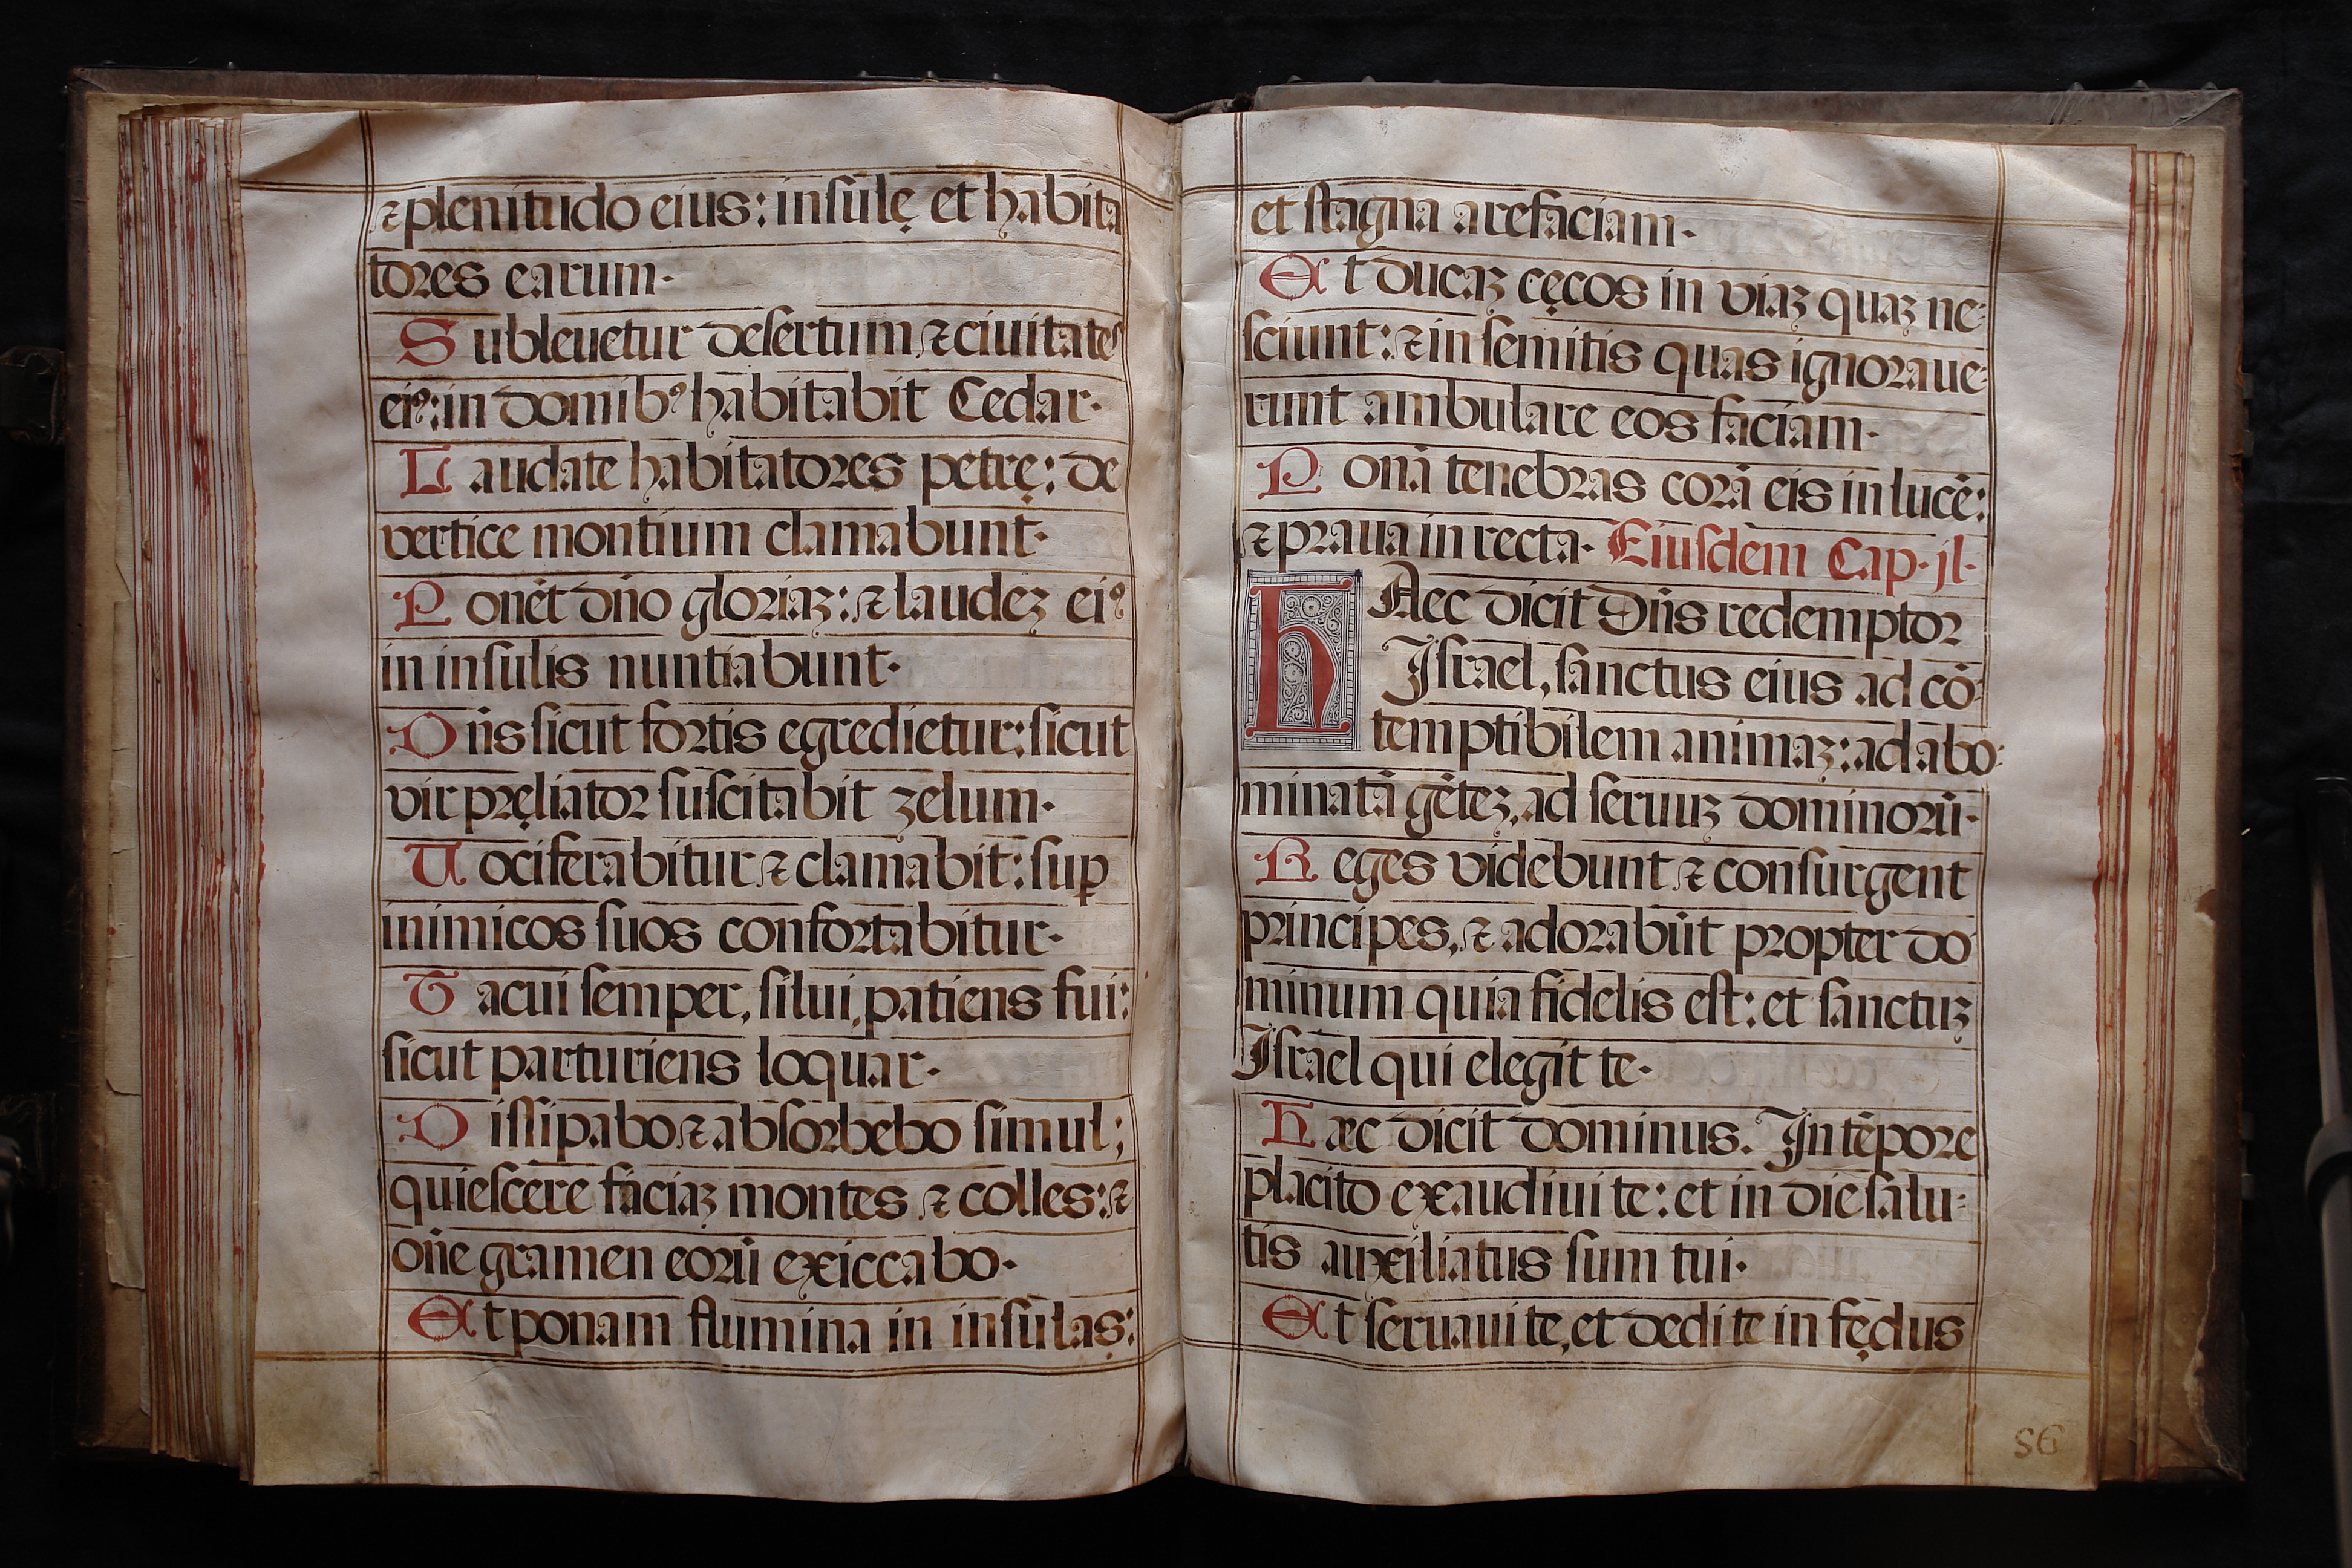 ⁊ plenitudo eius: insulę et habita
tores earum·
Subleuetur desertum, ⁊ ciuitates
eiꝰ: in domibꝰ habitabit Cedar·
Laudate habitatores petrę: de
vertice montium clamabunt·
Ponēt dño gloriaʒ: ⁊ laudeʒ eiꝰ
in insulis nuntiabunt·
Dñs sicut fortis egredietur: sicut
vir pręliator suscitabit zelum·
Uociferabitur ⁊ clamabit: suꝑ
inimicos suos confortabitur·
Tacui semper, silui, patiens fui:
sicut parturiens loquar·
Dissipabo ⁊ absorbebo simul;
quiescere faciaʒ montes ⁊ colles: ⁊
oñe gramen eorū exiccabo·
Et ponam flumina in insulas:
et stagna arefaciam·
Et ducaʒ cęcos in viaʒ quaʒ ne-
sciunt: ⁊ in semitis quas ignoraue-
runt ambulare eos faciam·
Ponā tenebras corā eis in lucē:
⁊ praua in recta· Eiusdem Cap· jl·
HAec dicit Dñs redemptor
Israel, sanctus eius ad cō-
temptibilem animaʒ: ad abo-
minatā gēteʒ, ad seruuʒ dominorū·
Reges videbunt ⁊ consurgent
principes, ⁊ adorabūt propter do
minum quia fidelis est: et sanctuʒ
Israel qui elegit te·
Hæc dicit dominus. In tēpore
placito exaudiui te: et in die salu-
tis auxiliatus sum tui·
Et seruaui te, et dedi te in fędus
86